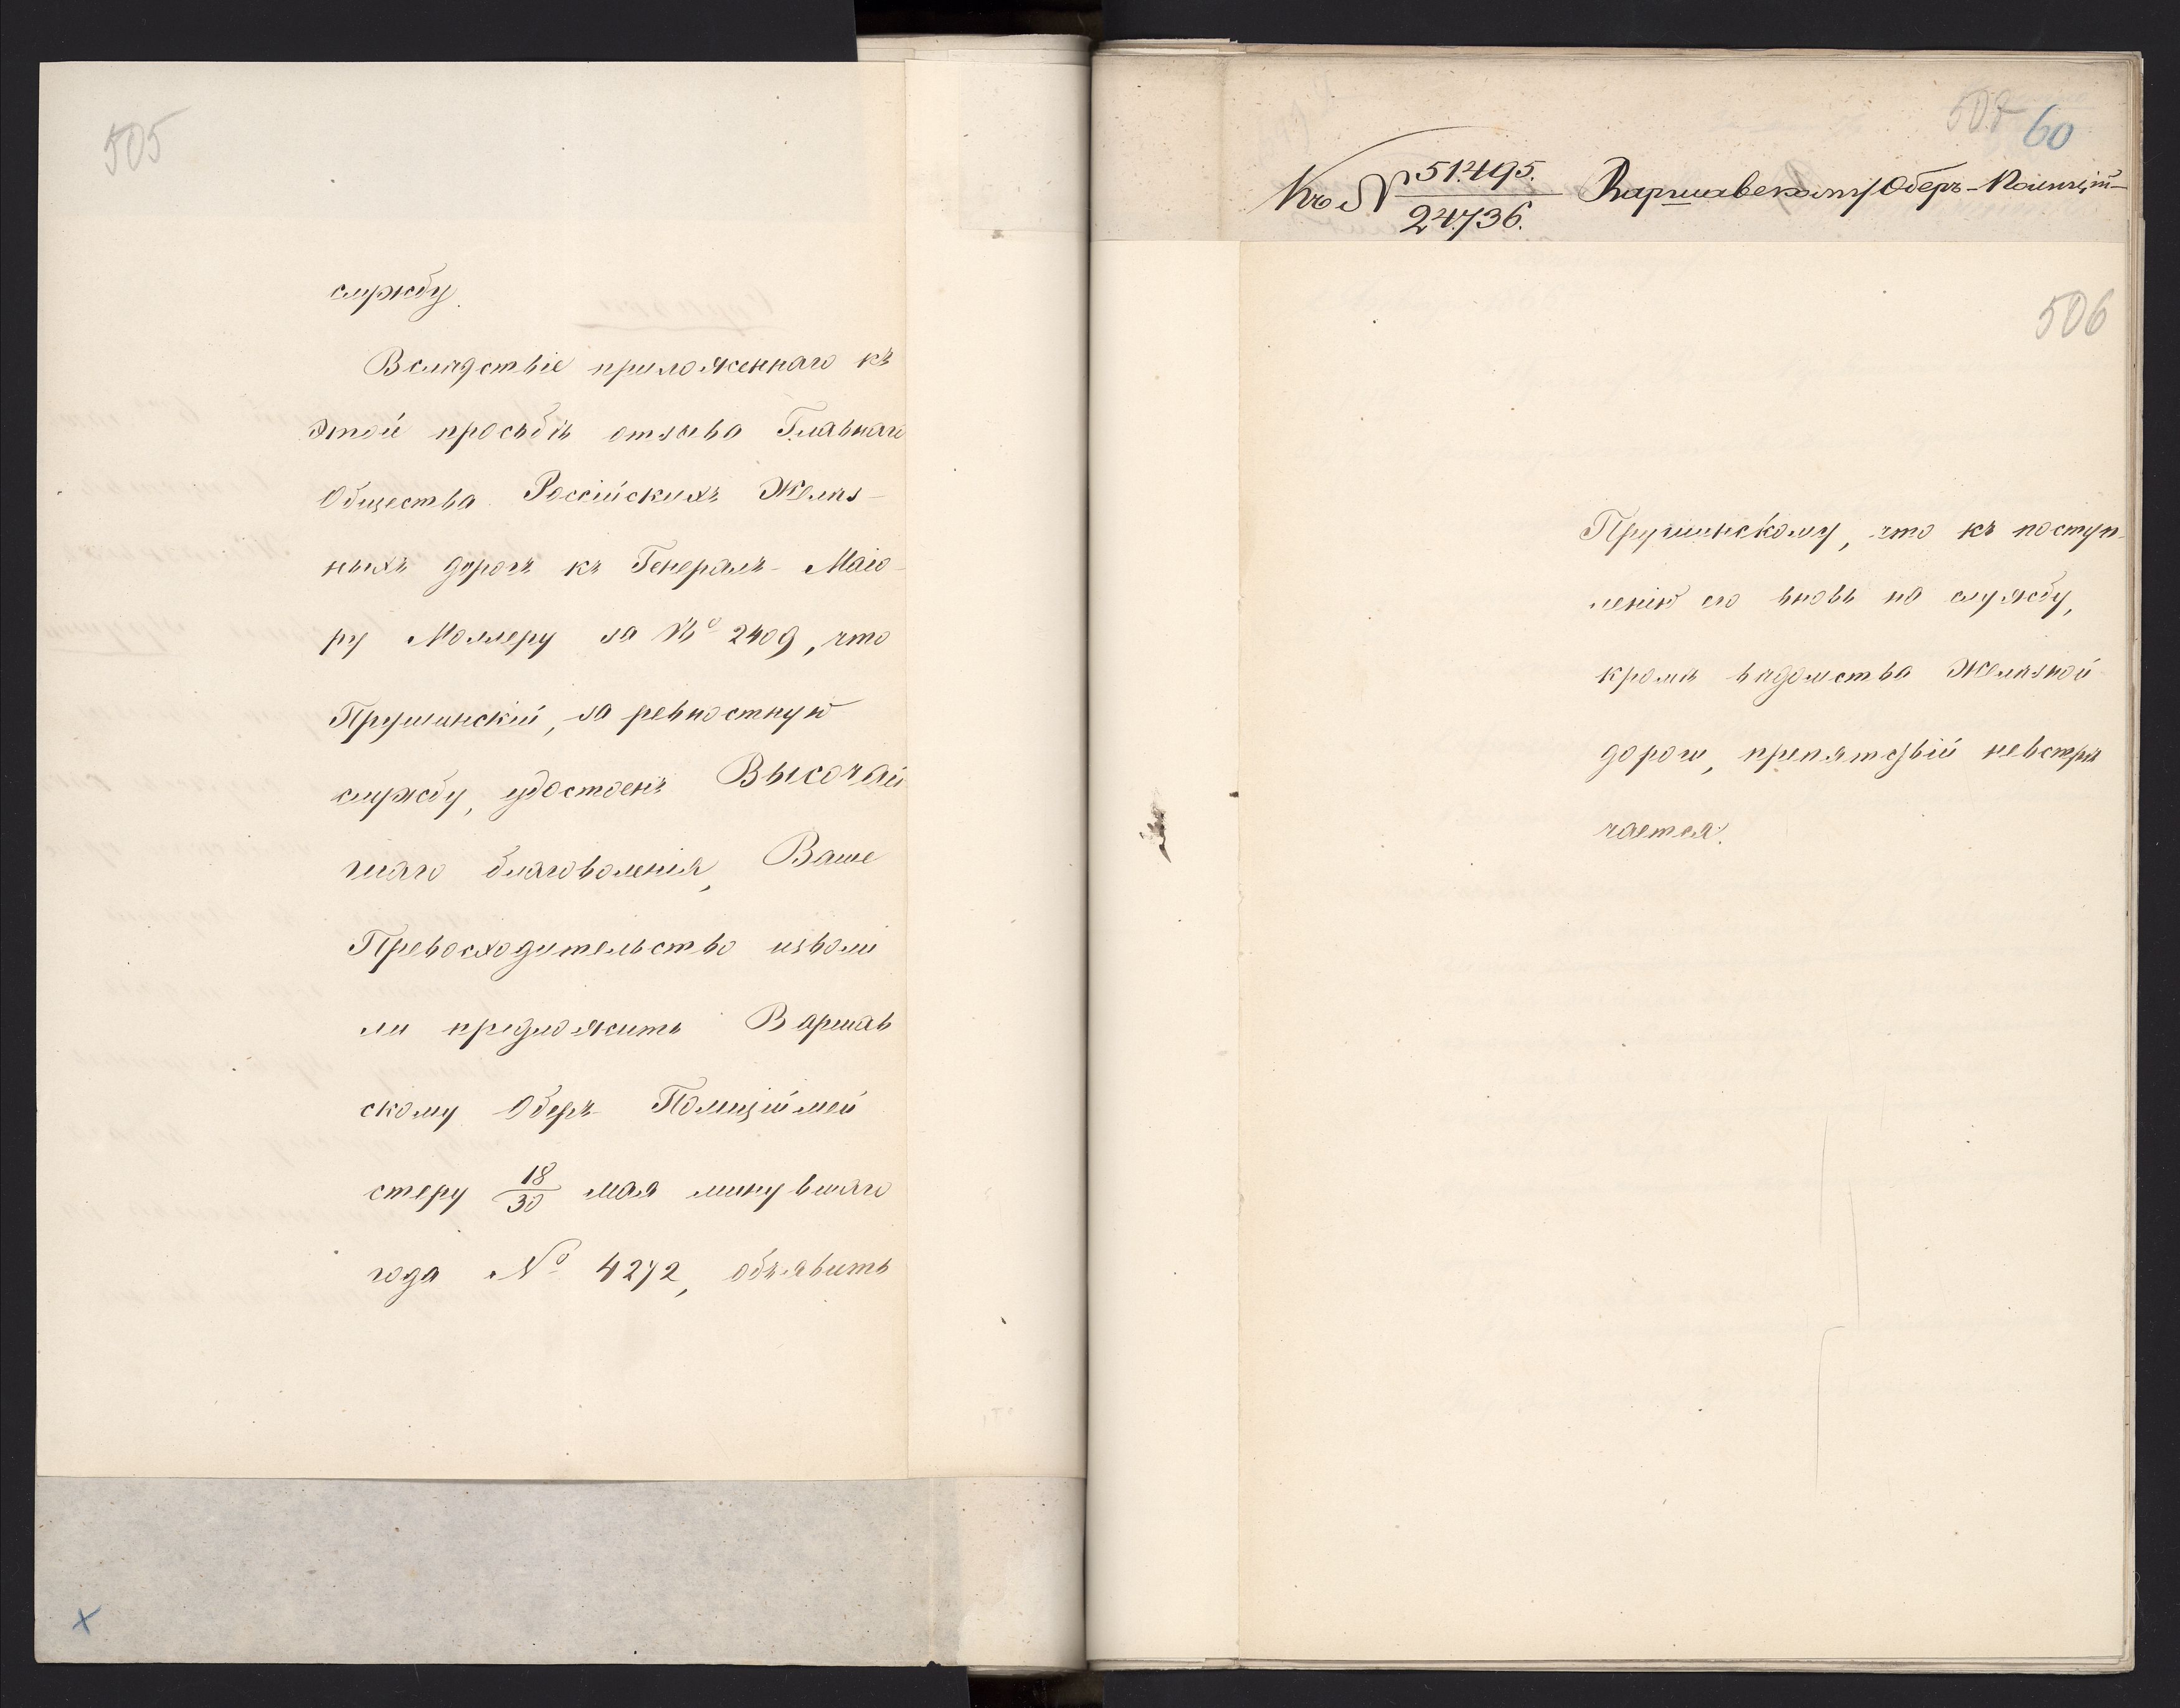 505
службу.
Вслѣдствіе приложеннаго къ
этой просьбѣ отзыва Главнаго
Общества Россійскихъ Желѣз-
ныхъ дорогъ къ Генералъ-Маіо-
ру Моллеру за № 2409, что
Прушинскій, за ревностную
службу, удостоенъ Высочай
шаго благоволенія, Ваше
Превосходительство изволи
ли предложить Варшав
скому Оберъ Полиціймей
стеру 18/30 мая минувшаго
года № 4272, объявить
60
Къ № 51.495./24.736. Варшавскому Оберъ-Полицій-
506
Прушинскому, что къ поступ-
ленію его вновь на службу,
кромѣ вѣдомства Желѣзной
дороги, препятствій невстрѣ
чается.